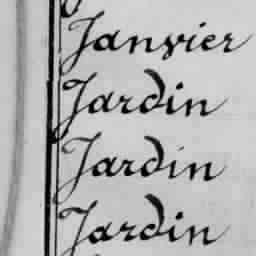 Janvier
Jardin
Jardin
Jardin